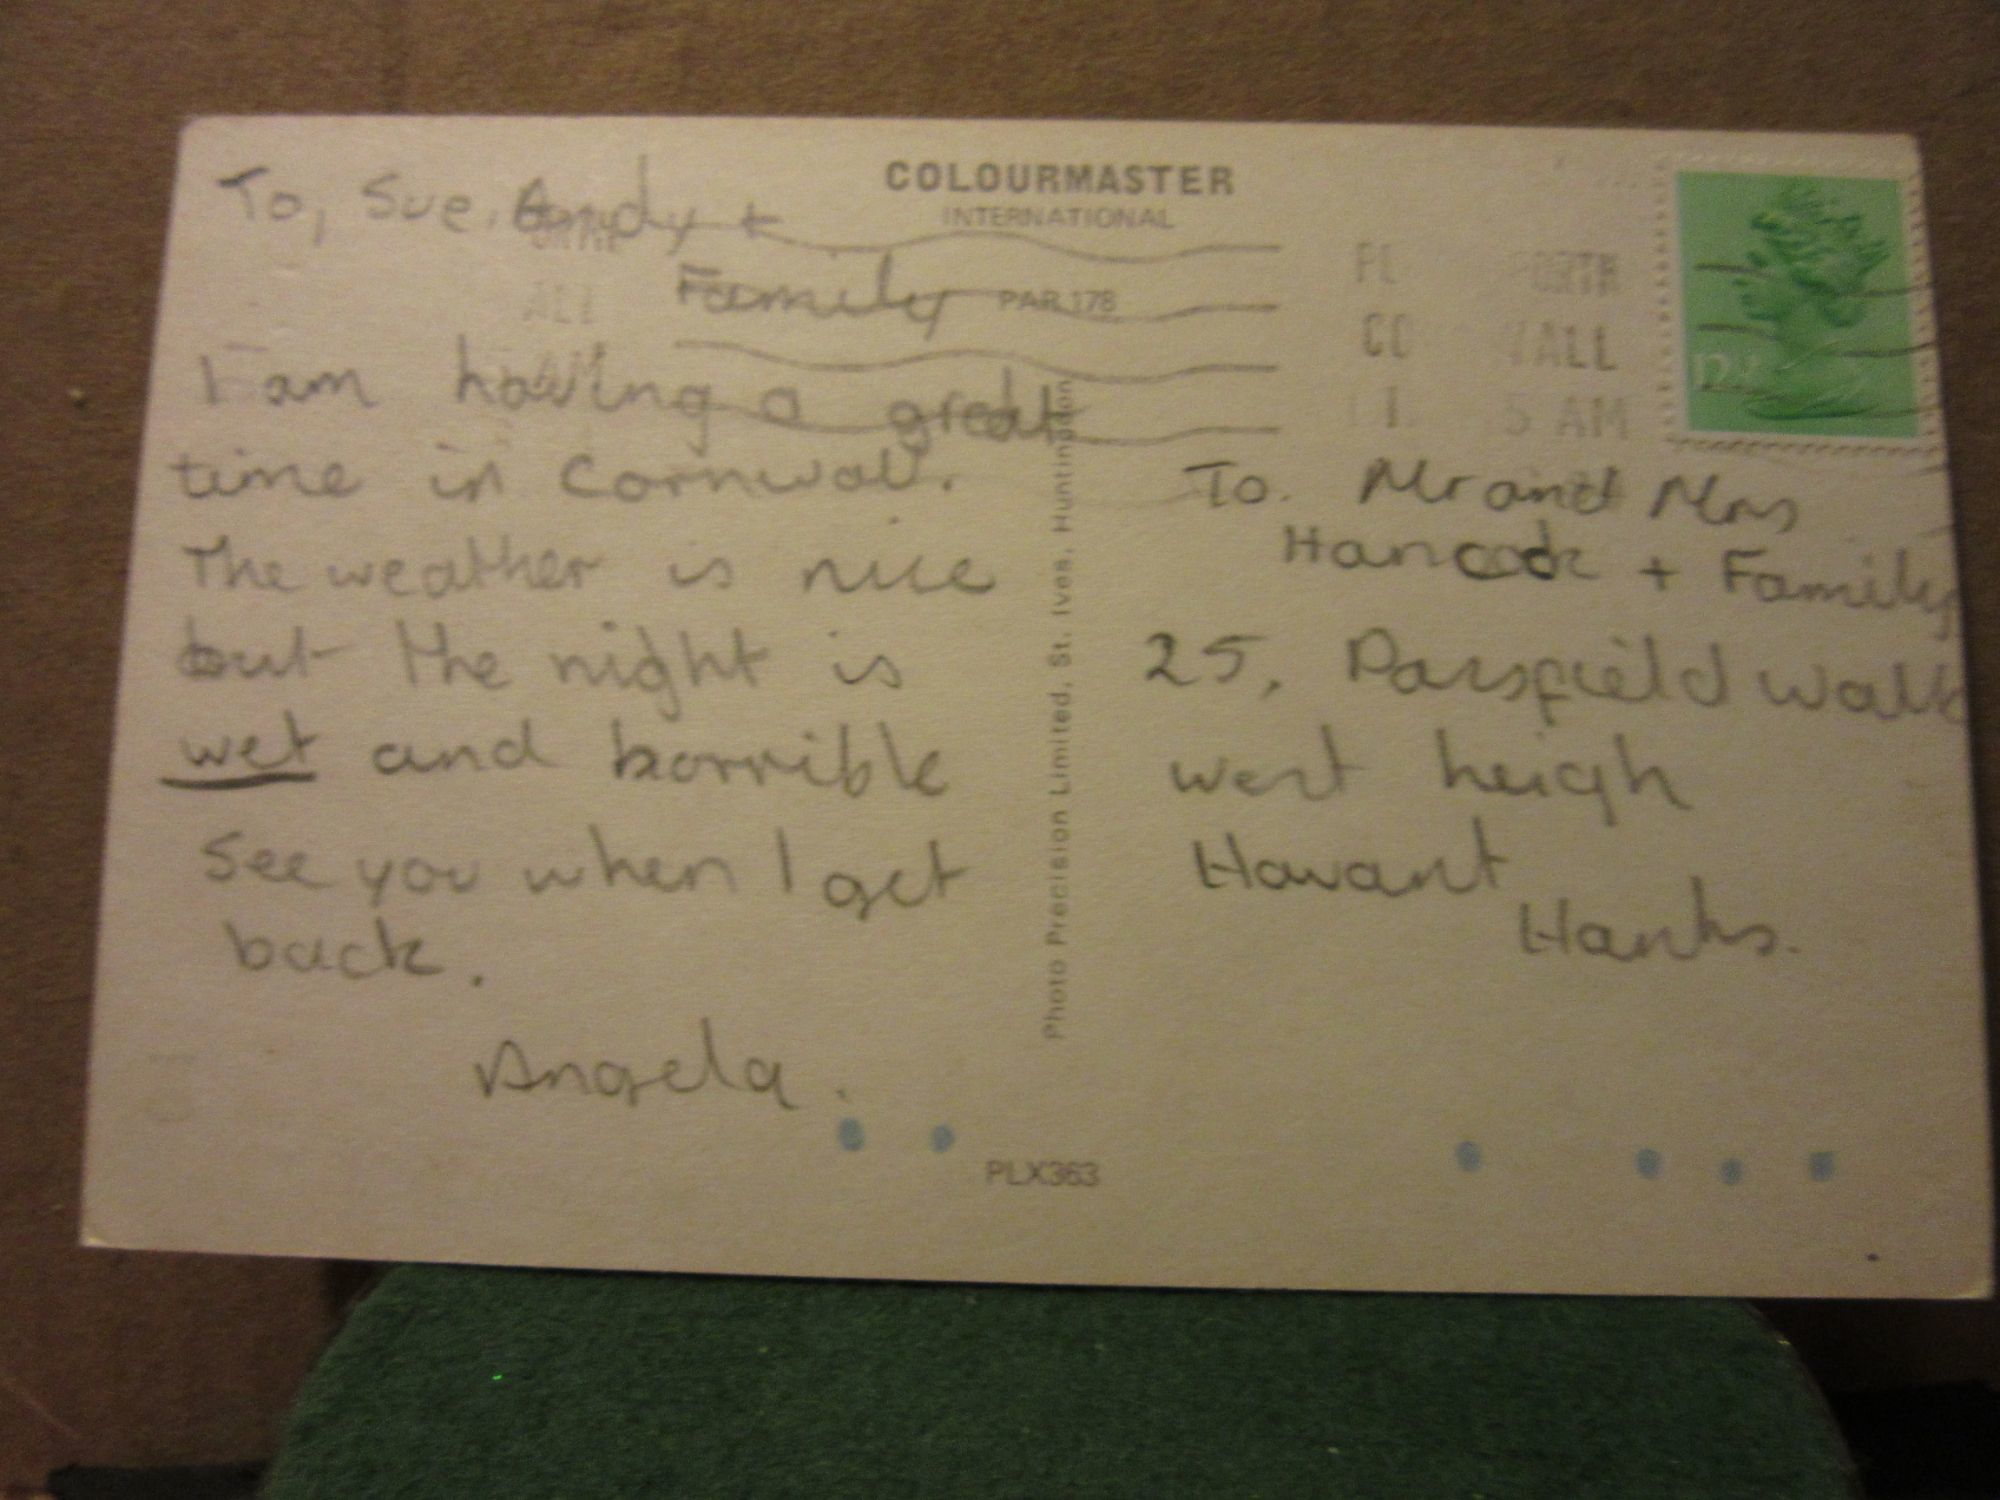 To, Sue, Andy +
Family
I am having a great
time in Cornwall.
The weather is nice
but the night is
wet and horrible
See you when I get
back.
Angela.
COLOURMASTER
INTERNATIONAL
PAR 178
Photo Precision Limited, St. Ives, Huntingdon
PLX363
ORTH
ALL
5 AM
To. Mr and Mrs
Hancock + Family
25, Walk
west heigh
Havant
Hants.